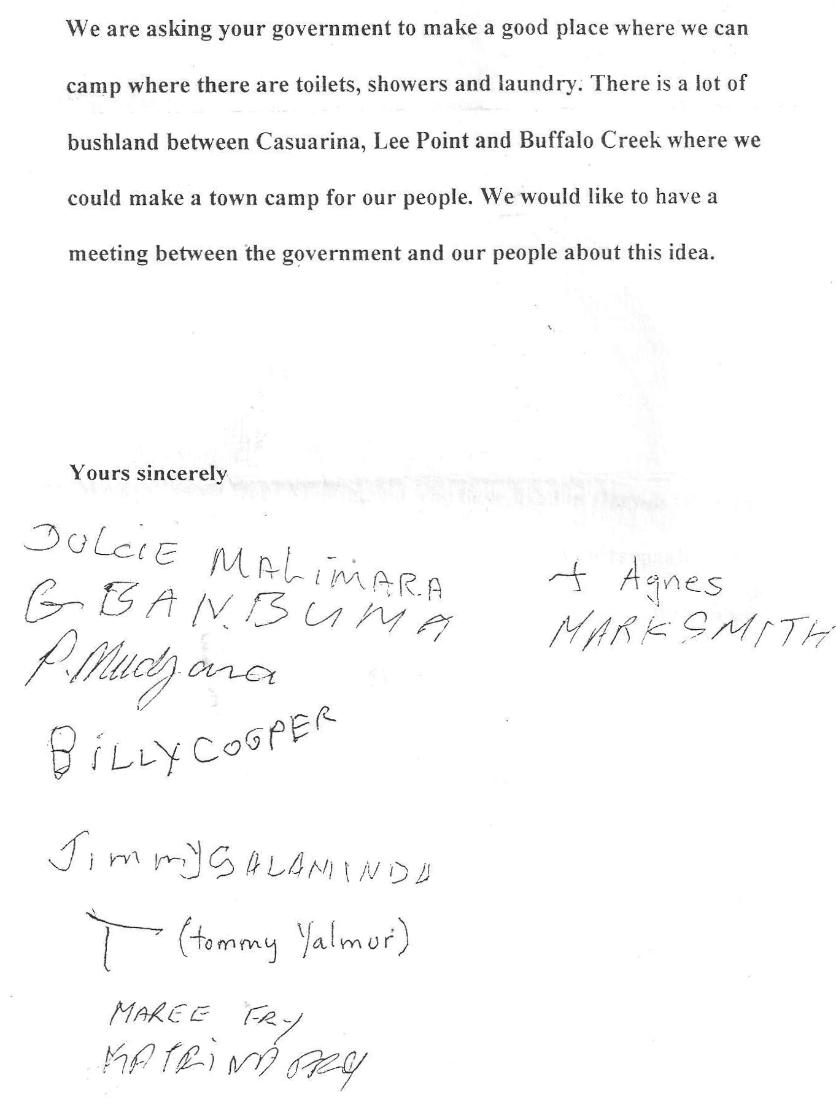 We are asking your government to make a good place where we can
camp where there are toilets, showers and laundry. There is a lot of
bushland between Casuarina, Lee Point and Buffalo Creek where we
could make a town camp for our people. We would like to have a
meeting between the government and our people about this idea.
Yours sincerely
DULCIE MALIMARA
G BANBUMA
P. Mudjana
BILLY COOPER
Jimmy GALAMINDA
T (tommy Yalmur)
MAREE FRY
KATRINA FRY
+ Agnes
MARK SMITH